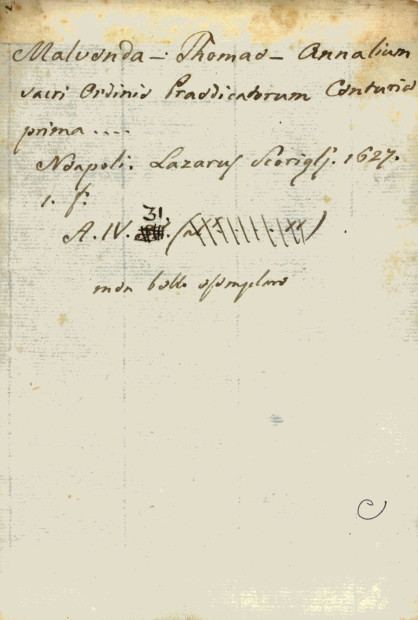 Malvenda - Thomae - Annalium
sacri Ordinis Praedicatorum Centuria
prima ....
Neapoli. Lazarus Scoriglj. 1627.
1. f.
31.
A. IV.
non bello esemplare